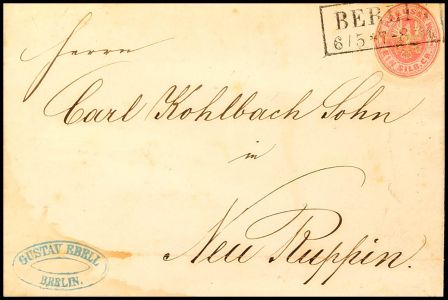 BERLIN
6/5
EIN SILB.GR.
Herrn
Carl Kohlbach Sohn
in
Neu Ruppin.
GUSTAV EBELL
BERLIN.